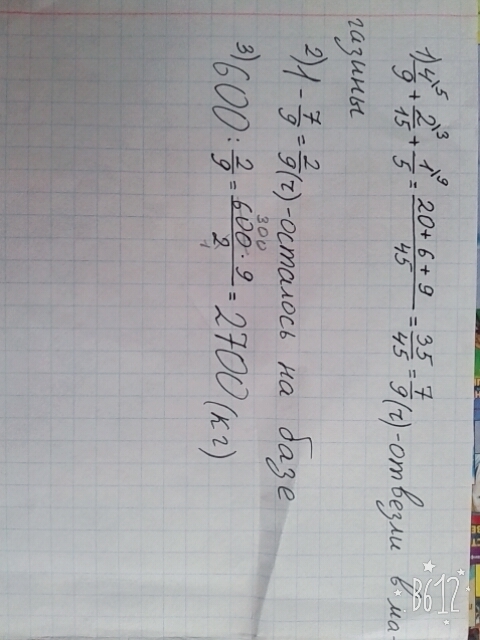 1) 4/9 ⁵⁾ + 2/15 ³⁾ + 1/5 ⁹⁾ = (20+6+9)/45 = 35/45 = 7/9 (ч)-отвезли в ма
газины
2) 1 - 7/9 = 2/9 (ч)-осталось на базе
3) 600 : 2/9 = (600 · 9)/2 = 2700 (кг)
300
1
B612